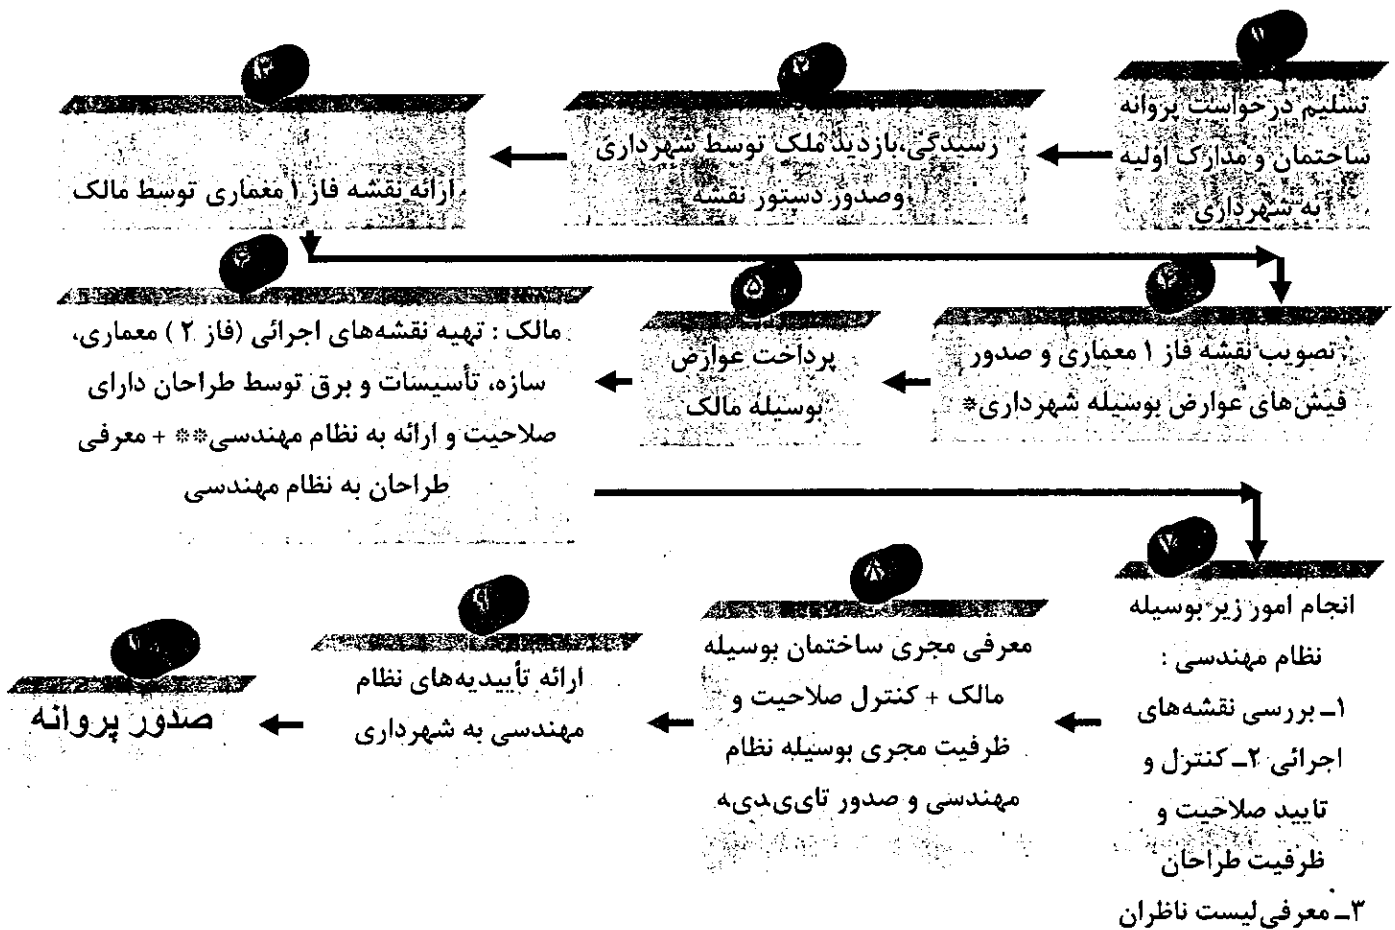 ۱
تسلیم درخواست پروانه
ساختمان و مدارک اولیه
به شهرداری*
۲
رسیدگی،بازدید ملک توسط شهرداری
وصدور دستور نقشه
۳
ارائه نقشه فاز ۱ معماری توسط مالک
تصویب نقشه فاز ۱ معماری و صدور
فیش‌های عوارض بوسیله شهرداری*
۵
پرداخت عوارض
بوسیله مالک
مالک : تهیه نقشه‌های اجرائی (فاز ۲ ) معماری،
سازه، تأسیسات و برق توسط طراحان دارای
صلاحیت و ارائه به نظام مهندسی** + معرفی
طراحان به نظام مهندسی
۷
انجام امور زیر بوسیله
نظام مهندسی :
۱ـ بررسی نقشه‌های
اجرائی ۲ـ کنترل و
تایید صلاحیت و
ظرفیت طراحان
۳ـ معرفی لیست ناظران
۸
معرفی مجری ساختمان بوسیله
مالک + کنترل صلاحیت و
ظرفیت مجری بوسیله نظام
مهندسی و صدور تای‌ی‌دی‌ه
۹
ارائه تأییدیه‌های نظام
مهندسی به شهرداری
صدور پروانه